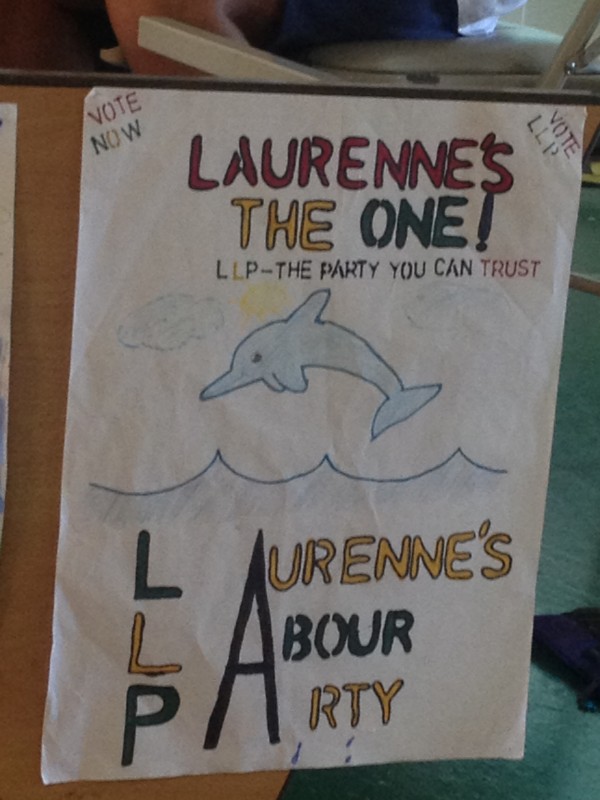 VOTE
NOW
VOTE
LLP
LAURENNE'S
THE ONE!
LLP-THE PARTY YOU CAN TRUST
LAURENNE'S
LABOUR
PARTY